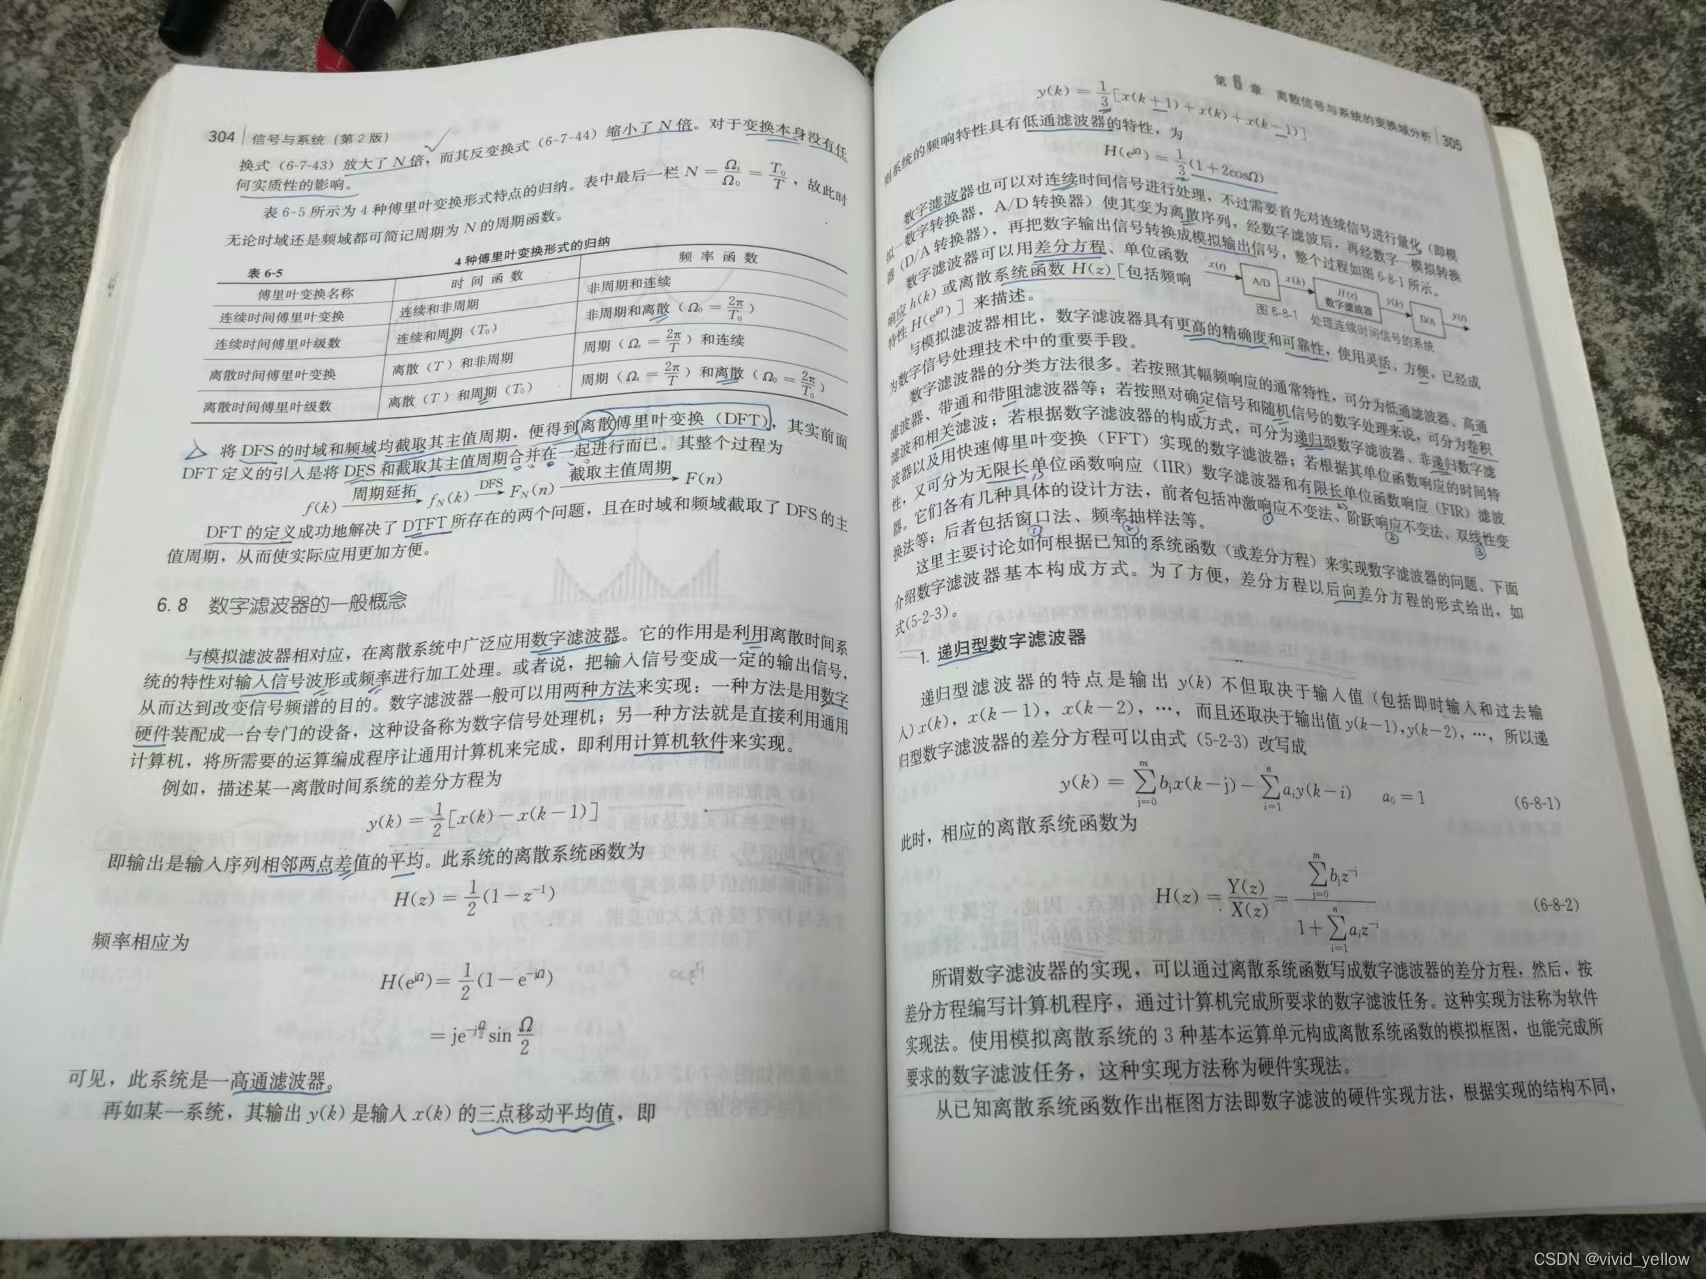 304 信号与系统（第2版）
换式（6-7-43）放大了N倍，而其反变换式（6-7-44）缩小了N倍。对于变换本身没有任
何实质性的影响。
表6-5所示为4种傅里叶变换形式特点的归纳。表中最后一栏 N = Ωs/Ω0 = T0/T，故此时
无论时域还是频域都可简记周期为N的周期函数。
表6-5 4种傅里叶变换形式的归纳
傅里叶变换名称 时间函数 频率函数
连续时间傅里叶变换 连续和非周期 非周期和连续
连续时间傅里叶级数 连续和周期（T0） 非周期和离散（Ω0 = 2π/T0）
离散时间傅里叶变换 离散（T）和非周期 周期（Ωs = 2π/T）和连续
离散时间傅里叶级数 离散（T）和周期（T0） 周期（Ωs = 2π/T）和离散（Ω0 = 2π/T0）
将DFS的时域和频域均截取其主值周期，便得到离散傅里叶变换（DFT），其实前面
DFT定义的引入是将DFS和截取其主值周期合并在一起进行而已。其整个过程为
f(k) 周期延拓→ fN(k) DFS→ FN(n) 截取主值周期→ F(n)
DFT的定义成功地解决了DTFT所存在的两个问题，且在时域和频域截取了DFS的主
值周期，从而使实际应用更加方便。
6.8 数字滤波器的一般概念
与模拟滤波器相对应，在离散系统中广泛应用数字滤波器。它的作用是利用离散时间系
统的特性对输入信号波形或频率进行加工处理。或者说，把输入信号变成一定的输出信号，
从而达到改变信号频谱的目的。数字滤波器一般可以用两种方法来实现：一种方法是用数字
硬件装配成一台专门的设备，这种设备称为数字信号处理机；另一种方法就是直接利用通用
计算机，将所需要的运算编成程序让通用计算机来完成，即利用计算机软件来实现。
例如，描述某一离散时间系统的差分方程为
y(k) = 1/2[x(k)-x(k-1)]
即输出是输入序列相邻两点差值的平均。此系统的离散系统函数为
H(z) = 1/2(1-z⁻¹)
频率相应为
H(e^jΩ) = 1/2(1-e^-jΩ)
= je^(-jΩ/2) sin Ω/2
可见，此系统是一高通滤波器。
再如某一系统，其输出y(k)是输入x(k)的三点移动平均值，即
第6章 离散信号与系统的变换域分析 305
y(k) = 1/3[x(k+1)+x(k)+x(k-1)]
则系统的频响特性具有低通滤波器的特性，为
H(e^jΩ) = 1/3(1+2cosΩ)
数字滤波器也可以对连续时间信号进行处理，不过需要首先对连续信号进行量化（即模
拟—数字转换器，A/D转换器）使其变为离散序列，经数字滤波后，再经数字—模拟转换
器（D/A转换器），再把数字输出信号转换成模拟输出信号，整个过程如图6-8-1所示。
数字滤波器可以用差分方程、单位函数
响应h(k)或离散系统函数H(z)[包括频响
特性H(e^jΩ)]来描述。
x(t) A/D x(k) H(z) 数字滤波器 y(k) D/A y(t)
图6-8-1 处理连续时间信号的系统
与模拟滤波器相比，数字滤波器具有更高的精确度和可靠性，使用灵活、方便，已经成
为数字信号处理技术中的重要手段。
数字滤波器的分类方法很多。若按照其幅频响应的通常特性，可分为低通滤波器、高通
滤波器、带通和带阻滤波器等；若按照对确定信号和随机信号的数字处理来说，可分为卷积
滤波和相关滤波；若根据数字滤波器的构成方式，可分为递归型数字滤波器、非递归数字滤
波器以及用快速傅里叶变换（FFT）实现的数字滤波器；若根据其单位函数响应的时间特
性，又可分为无限长单位函数响应（IIR）数字滤波器和有限长单位函数响应（FIR）滤波
器。它们各有几种具体的设计方法，前者包括冲激响应不变法、阶跃响应不变法、双线性变
换法等；后者包括窗口法、频率抽样法等。
① ② ③
① ②
这里主要讨论如何根据已知的系统函数（或差分方程）来实现数字滤波器的问题。下面
介绍数字滤波器基本构成方式。为了方便，差分方程以后向差分方程的形式给出，如
式(5-2-3)。
1. 递归型数字滤波器
递归型滤波器的特点是输出y(k)不但取决于输入值（包括即时输入和过去输
入）x(k)，x(k-1)，x(k-2)，…，而且还取决于输出值y(k-1),y(k-2)，…，所以递
归型数字滤波器的差分方程可以由式（5-2-3）改写成
y(k) = Σ(j=0→m) bjx(k-j) - Σ(i=1→n) aiy(k-i) a0=1 (6-8-1)
此时，相应的离散系统函数为
H(z) = Y(z)/X(z) = Σ(j=0→m) bjz^-j / (1+Σ(i=1→n) aiz^-i) (6-8-2)
所谓数字滤波器的实现，可以通过离散系统函数写成数字滤波器的差分方程，然后，按
差分方程编写计算机程序，通过计算机完成所要求的数字滤波任务。这种实现方法称为软件
实现法。使用模拟离散系统的3种基本运算单元构成离散系统函数的模拟框图，也能完成所
要求的数字滤波任务，这种实现方法称为硬件实现法。
从已知离散系统函数作出框图方法即数字滤波的硬件实现方法，根据实现的结构不同，
CSDN @vivid_yellow